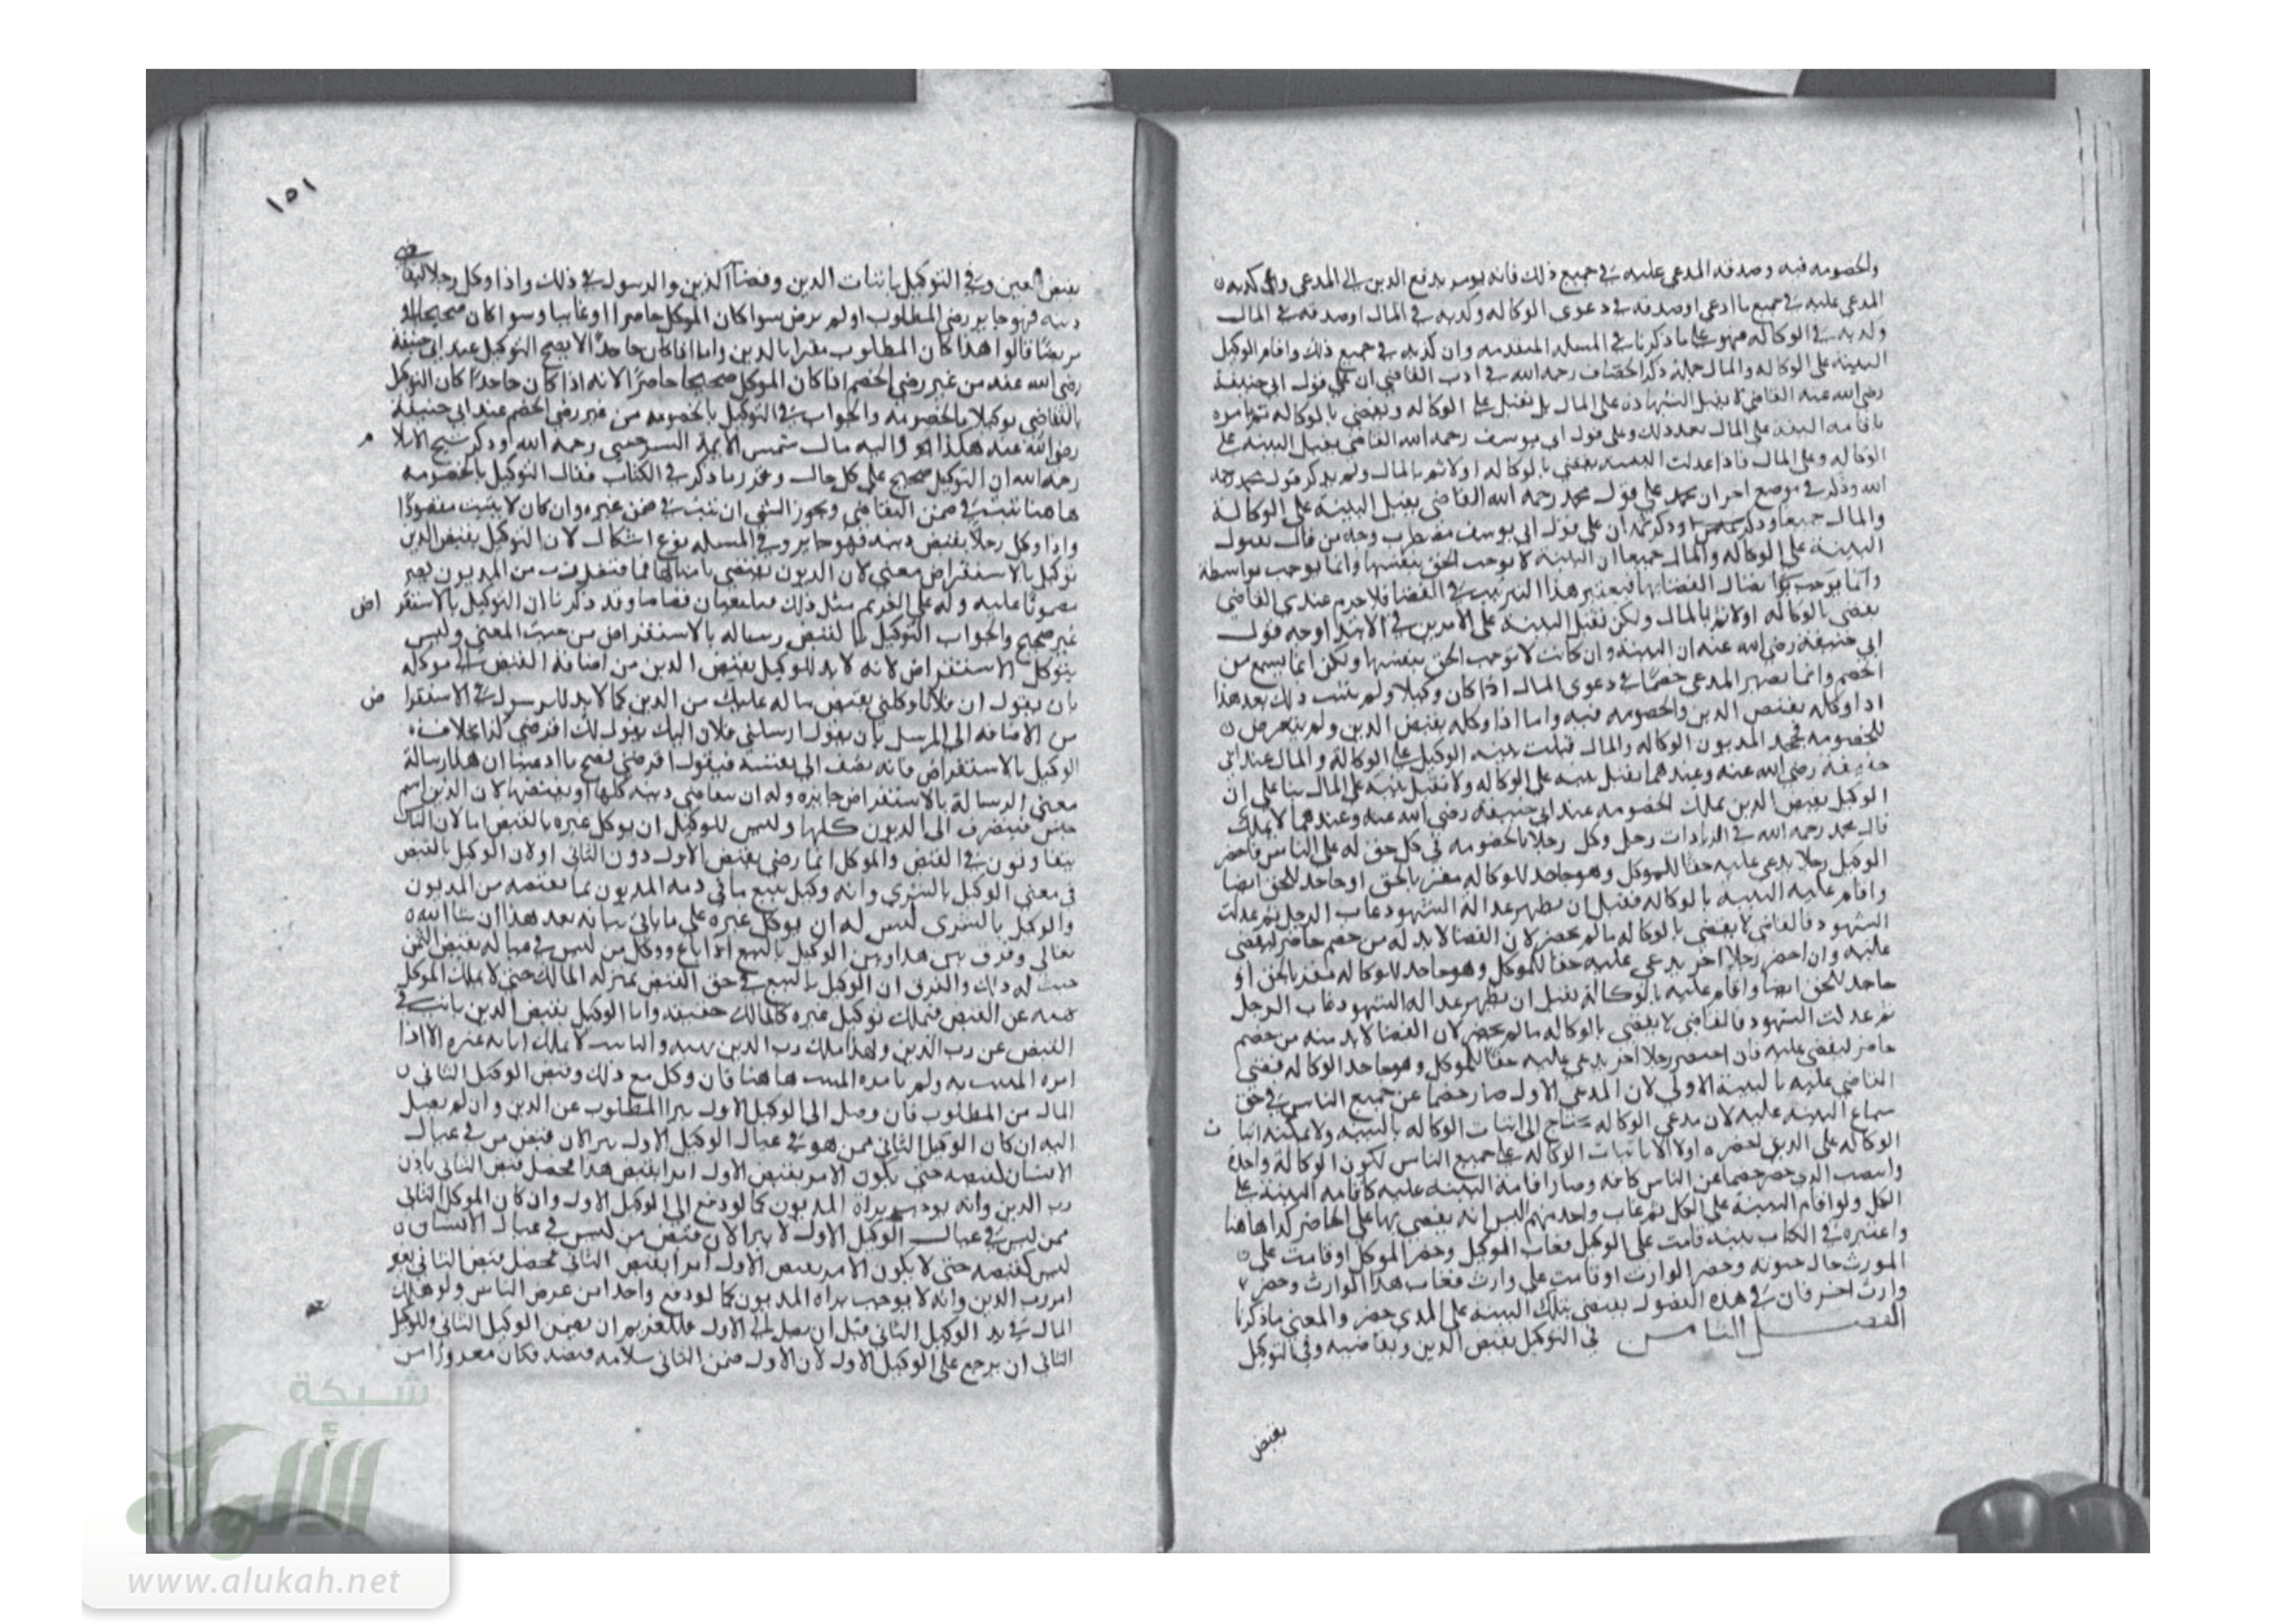 والخصومه فيه وصدقه المدعى عليه في جميع ذلك فانه يومر بدفع الدين الى المدعي وان كذبه
المدعى عليه في جميع ما ادعى او صدقه في دعوى الوكاله وكذبه في المال او صدقه في المال
وكذبه في الوكاله فهو على ما ذكرنا في المسله المتقدمه وان كذبه في جميع ذلك واقام الوكيل
البينة على الوكاله والمال جملة ذكر الخصاف رحمه الله في ادب القاضي ان على قول ابي حنيفة
رضي الله عنه القاضي لا يقبل الشهادة على المال بل يقبل على الوكاله ويقضي بالوكاله ثم يامره
باقامه البينة على المال بعد ذلك وعلى قول ابي يوسف رحمه الله القاضي يقبل البينه على
الوكاله وعلى المال فاذا عدلت البينه يقضي بالوكاله اولا ثم بالمال ولم يذكر قول محمد رحمه
الله وذكر في موضع اخر ان محمد على قول محمد رحمه الله القاضي يقبل البينة على الوكالة
والمال جميعا وذكر ان على قول ابي يوسف مضطرب وجه من قال بقبول
البينة على الوكاله والمال جميعا ان البينة لا توجب الحق بنفسها وانما توجب بواسطة
وانما يوجب اتصال القضا بها فيعتبر هذا الترتيب في القضا فلا جرم عندي القاضي
يقضي بالوكاله اولا ثم بالمال ولكن تقبل البينة على الامرين في الابتدا وجه قول
ابي حنيفة رضي الله عنه ان البينة وان كانت لا توجب الحق بنفسها ولكن انما يسمع من
الخصم وانما يصير المدعي خصما في دعوى المال اذا كان وكيلا ولم يثبت ذلك بعد هذا
اذا وكله بقبض الدين والخصومه فيه واما اذا وكله بقبض الدين ولم يتعرض
للخصومه فجحد المديون الوكاله والمال قبلت بينه الوكيل على الوكالة والمال عند ابي
حنيفه رضي الله عنه وعندهما يقبل بينه على الوكاله ولا تقبل بينه على المال بنا على ان
الوكيل بقبض الدين يملك الخصومه عند ابي حنيفة رضي الله عنه وعندهما لا يملك
قال محمد رحمه الله في الزيادات رجل وكل رجلا بالخصومه في كل حق له على الناس فاحضر
الوكيل رجلا يدعي عليه حقا للموكل وهو جاحد للوكاله مقر بالحق او جاحد للحق ايضا
واقام عليه البينة بالوكاله فقبل ان يظهر عدالة الشهود غاب الرجل ثم عدلت
الشهود فالقاضي لا يقضي بالوكاله ما لم يحضر لان القضا لا بد له من خصم حاضر ليقضي
عليه وان احضر رجلا اخر يدعي عليه حقا للموكل وهو جاحد للوكاله مقر بالحق او
جاحد للحق ايضا واقام عليه بالوكالة فقبل ان يظهر عداله الشهود غاب الرجل
ثم عدلت الشهود فالقاضي لا يقضي بالوكاله ما لم يحضر لان القضا لا بد منه من خصم
حاضر ليقضي عليه فان احضر رجلا اخر يدعي عليه حقا للموكل وهو جاحد الوكاله فقضى
القاضي عليه بالبينة الاولى لان المدعى الاول صار خصما عن جميع الناس في حق
سماع البينه عليه لان مدعي الوكاله يحتاج الى اثبات الوكاله بالبينه ولا يمكنه اثبا ت
الوكاله على الذي احضره اولا الا باثبات الوكاله على جميع الناس لكون الوكالة واحدة
وانتصب الذي حضر خصما عن الناس كافه وصار اقامة البينه عليه كاقامه البينة على
الكل ولو اقام البينة على الكل ثم غاب واحد منهم اليس انه يقضي بها على الحاضر كذا هاهنا
واعتبره في الكتاب ببينه قامت على الوكيل فغاب الموكيل وحضر الموكل او قامت على
المورث حال حيوته وحضر الوارث او قامت على وارث فغاب هذا الوارث وحضر
وارث اخر فان في هذه الفصول يقضي بتلك البينة على الذي حضر والمعنى ما ذكرنا
الفصل الثامن في التوكيل بقبض الدين وبقاضيه وفي التوكيل
بقبض
١٥١
بقبض العين وفي التوكيل باثبات الدين وقضا الدين والرسول في ذلك واذا وكل رجلا بتقاضي
دينه فهو جايز رضي المطلوب او لم يرض سوا كان الموكل حاضرا او غايبا وسوا كان صحيحا او
مريضا قالوا هذا كان المطلوب مقرا بالدين واما اذا كان جاحدا لا يصح التوكيل عند ابي حنيفة
رضي الله عنه من غير رضي الخصم اذا كان الموكل صحيحا حاضرا لانه اذا كان جاحدا كان التوكل
بالتقاضي توكيلا بالخصومه والجواب في التوكيل بالخصومه من غير رضى الخصم عند ابي حنيفة
رضي الله عنه هكذا واليه مال شمس الايمة السرخسي رحمه الله وذكر شيخ الاسلا م
رحمه الله ان التوكيل صحيح على كل حال وعزر ما ذكر في الكتاب فقال التوكيل بالخصومه
هاهنا تثبت في ضمن التقاضي ويجوز الشي ان يثبت في ضمن غيره وان كان لا يثبت مقصودا
واذا وكل رجلا بقبض دينه فهو جايز وفي المسله نوع اشكال لان التوكيل بقبض الدين
توكيل بالاستقراض معنى لان الديون تقضى بامثالها فما قبض رب من المديون يصير
مضمونا عليه وله على الغريم مثل ذلك فيلتقيان قصاصا وقد ذكرنا ان التوكيل بالاستقر اض
غير صحيح والجواب التوكيل بالقبض رساله بالاستقراض من حيث المعنى وليس
بتوكل الاستقراض لانه لا بد للوكيل بقبض الدين من اضافة القبض الى موكله
بان يقول ان فلانا وكلني بقبض ما له عليك من الدين كما لا بد للرسول في الاستقرا ض
من الاضافه الى المرسل بان يقول ارسلني فلان اليك يقول لك اقرضني كذا بخلاف
الوكيل بالاستقراض فانه يضف الى نفسه فيقول اقرضني فصح ما ادعينا ان هذا رسالة
معنى الرسالة بالاستقراض جايزه وله ان يتقاضى دينه كلها ويقبضها لان الدين اسم
جنس فينصرف الى الديون كلها وليس للوكيل ان يوكل غيره بالقبض اما لان الناس
يتفاوتون في القبض والموكل انما رضي بقبض الاول دون الثاني او لان الوكيل بالقبض
في معنى الوكيل بالشرى وانه وكيل ببيع ما في ذمه المديون بما يقبضه من المديون
والوكيل بالشرى ليس له ان يوكل غيره على ما ياتي بيانه بعد هذا ان شا الله
تعالى وفرق بين هذا وبين الوكيل بالبيع اذا باع ووكل من ليس في عياله بقبض الثمن
حيث له ذلك والفرق ان الوكيل بالبيع في حق القبض بمنزلة المالك حتى لا يملك الموكل
عن القبض فيملك توكيل غيره كالمالك حقيقه واما الوكيل بقبض الدين نايب في
القبض عن رب الدين ولهذا ملك رب الدين نهيه والنايب لا يملك انابه غيره الا اذا
امره المنيب به ولم يامره المنيب هاهنا فان وكل مع ذلك وقبض الوكيل الثاني
المال من المطلوب فان وصل الى الوكيل الاول يبرا المطلوب عن الدين وان لم يصل
اليه ان كان الوكيل الثاني ممن هو في عيال الوكيل الاول يبرا لان قبض من في عيال
الانسان كقبضه حتى يكون الامر بقبض الاول امرا بقبض هذا فحصل قبض الثاني باذن
رب الدين وانه يوجب براة المديون كما لو دفع الى الوكيل الاول وان كان الموكل الثاني
ممن ليس في عيال الوكيل الاول لا يبرا لان قبض من ليس في عيال الانسان
ليس كقبضه حتى لا يكون الامر بقبض الاول امرا بقبض الثاني فحصل قبض الثاني بغير
امر رب الدين وانه لا يوجب براه المديون كما لو دفع واحدا من عرض الناس ولو هلك
المال في يد الوكيل الثاني قبل ان يصل الى الاول فللغريم ان يضمن الوكيل الثاني وللوكيل
الثاني ان يرجع على الوكيل الاول لان الاول ضمن الثاني سلامه قبضه فكان مغرورا من
شبكة
الألوكة
www.alukah.net